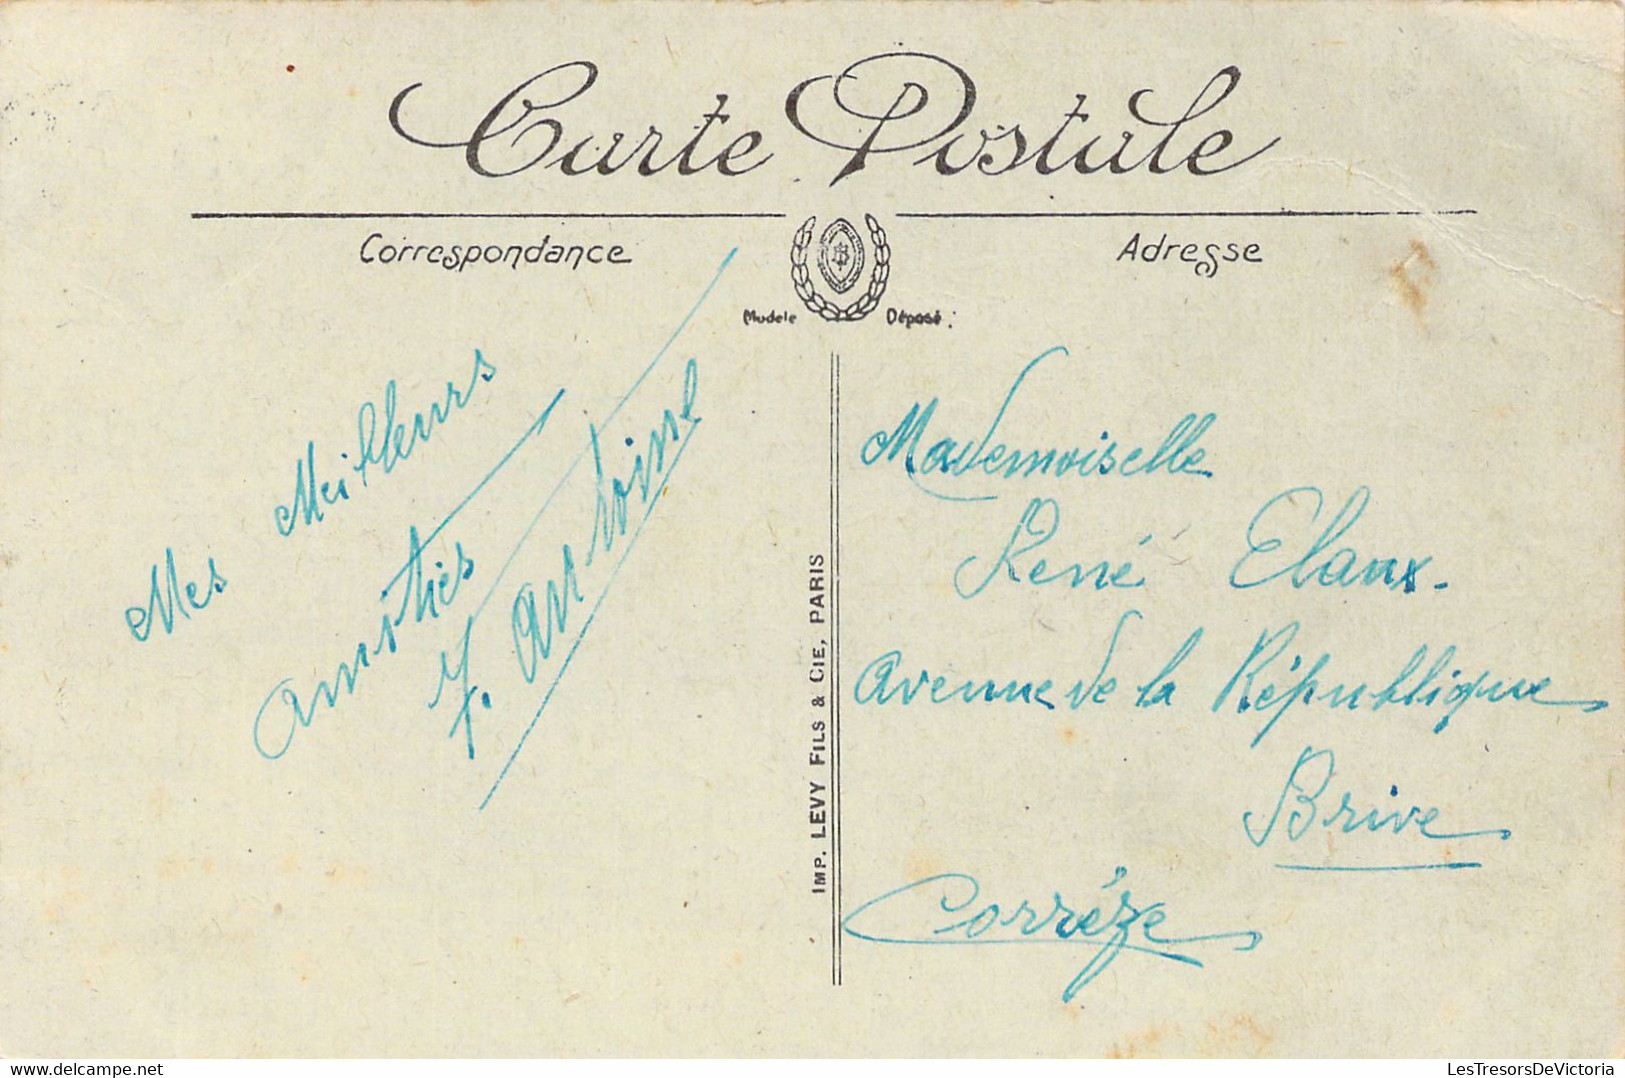 Carte Postale
Correspondance
Adresse
Modèle Déposé
Mes Meilleurs
amitiés
Y. Antoine
IMP. LEVY FILS & CIE, PARIS
Mademoiselle
René Elaux.
Avenue de la République
Brive
Corrèze
delcampe.net
LesTresorsDeVictoria